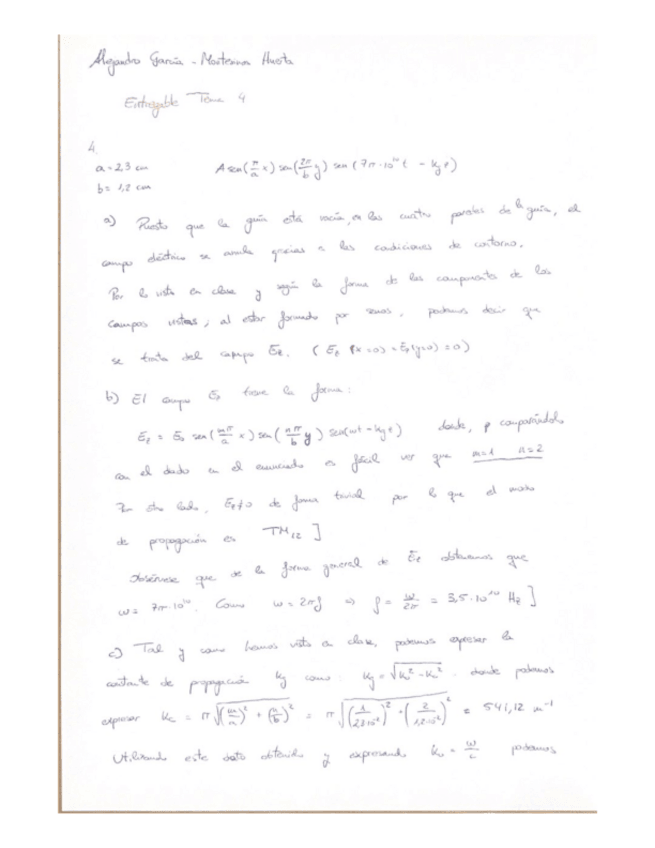 Alejandro García - Huerta
Entregable Tema 4
4.
a = 2,3 cm A sen(π/a x) sen(2π/b y) sen(7π·10¹⁰ t - kg z)
b = 1,2 cm
a) Puesto que la guía está vacía, en las cuatro paredes de la guía, el
campo eléctrico se anula gracias a las condiciones de contorno.
Por lo visto en clase y según la forma de las componentes de los
campos vistas, al estar formado por senos, podemos decir que
se trata del campo Ez. (Ez (x=0) = Ez(y=0) = 0)
b) El campo Ez tiene la forma:
Ez = E0 sen(mπ/a x) sen(nπ/b y) sen(ωt - kg z) donde, comparándolo
con el dado en el enunciado es fácil ver que m=1 n=2
Por otro lado, Ez≠0 de forma trivial por lo que el modo
de propagación es TM12 ]
Obsérvese que de la forma general de Ez obtenemos que
ω = 7π·10¹⁰. Como ω = 2πf ⇒ f = ω/2π = 3,5·10¹⁰ Hz ]
c) Tal y como hemos visto en clase, podemos expresar la
constante de propagación kg como: kg = √ donde podemos
expresar Kc = π√((m/a)² + (n/b)²) = π√((1/2,3·10⁻²)² + (2/1,2·10⁻²)²) = 541,12 m⁻¹
Utilizando este dato obtenido y expresando k₀ = ω/c podemos